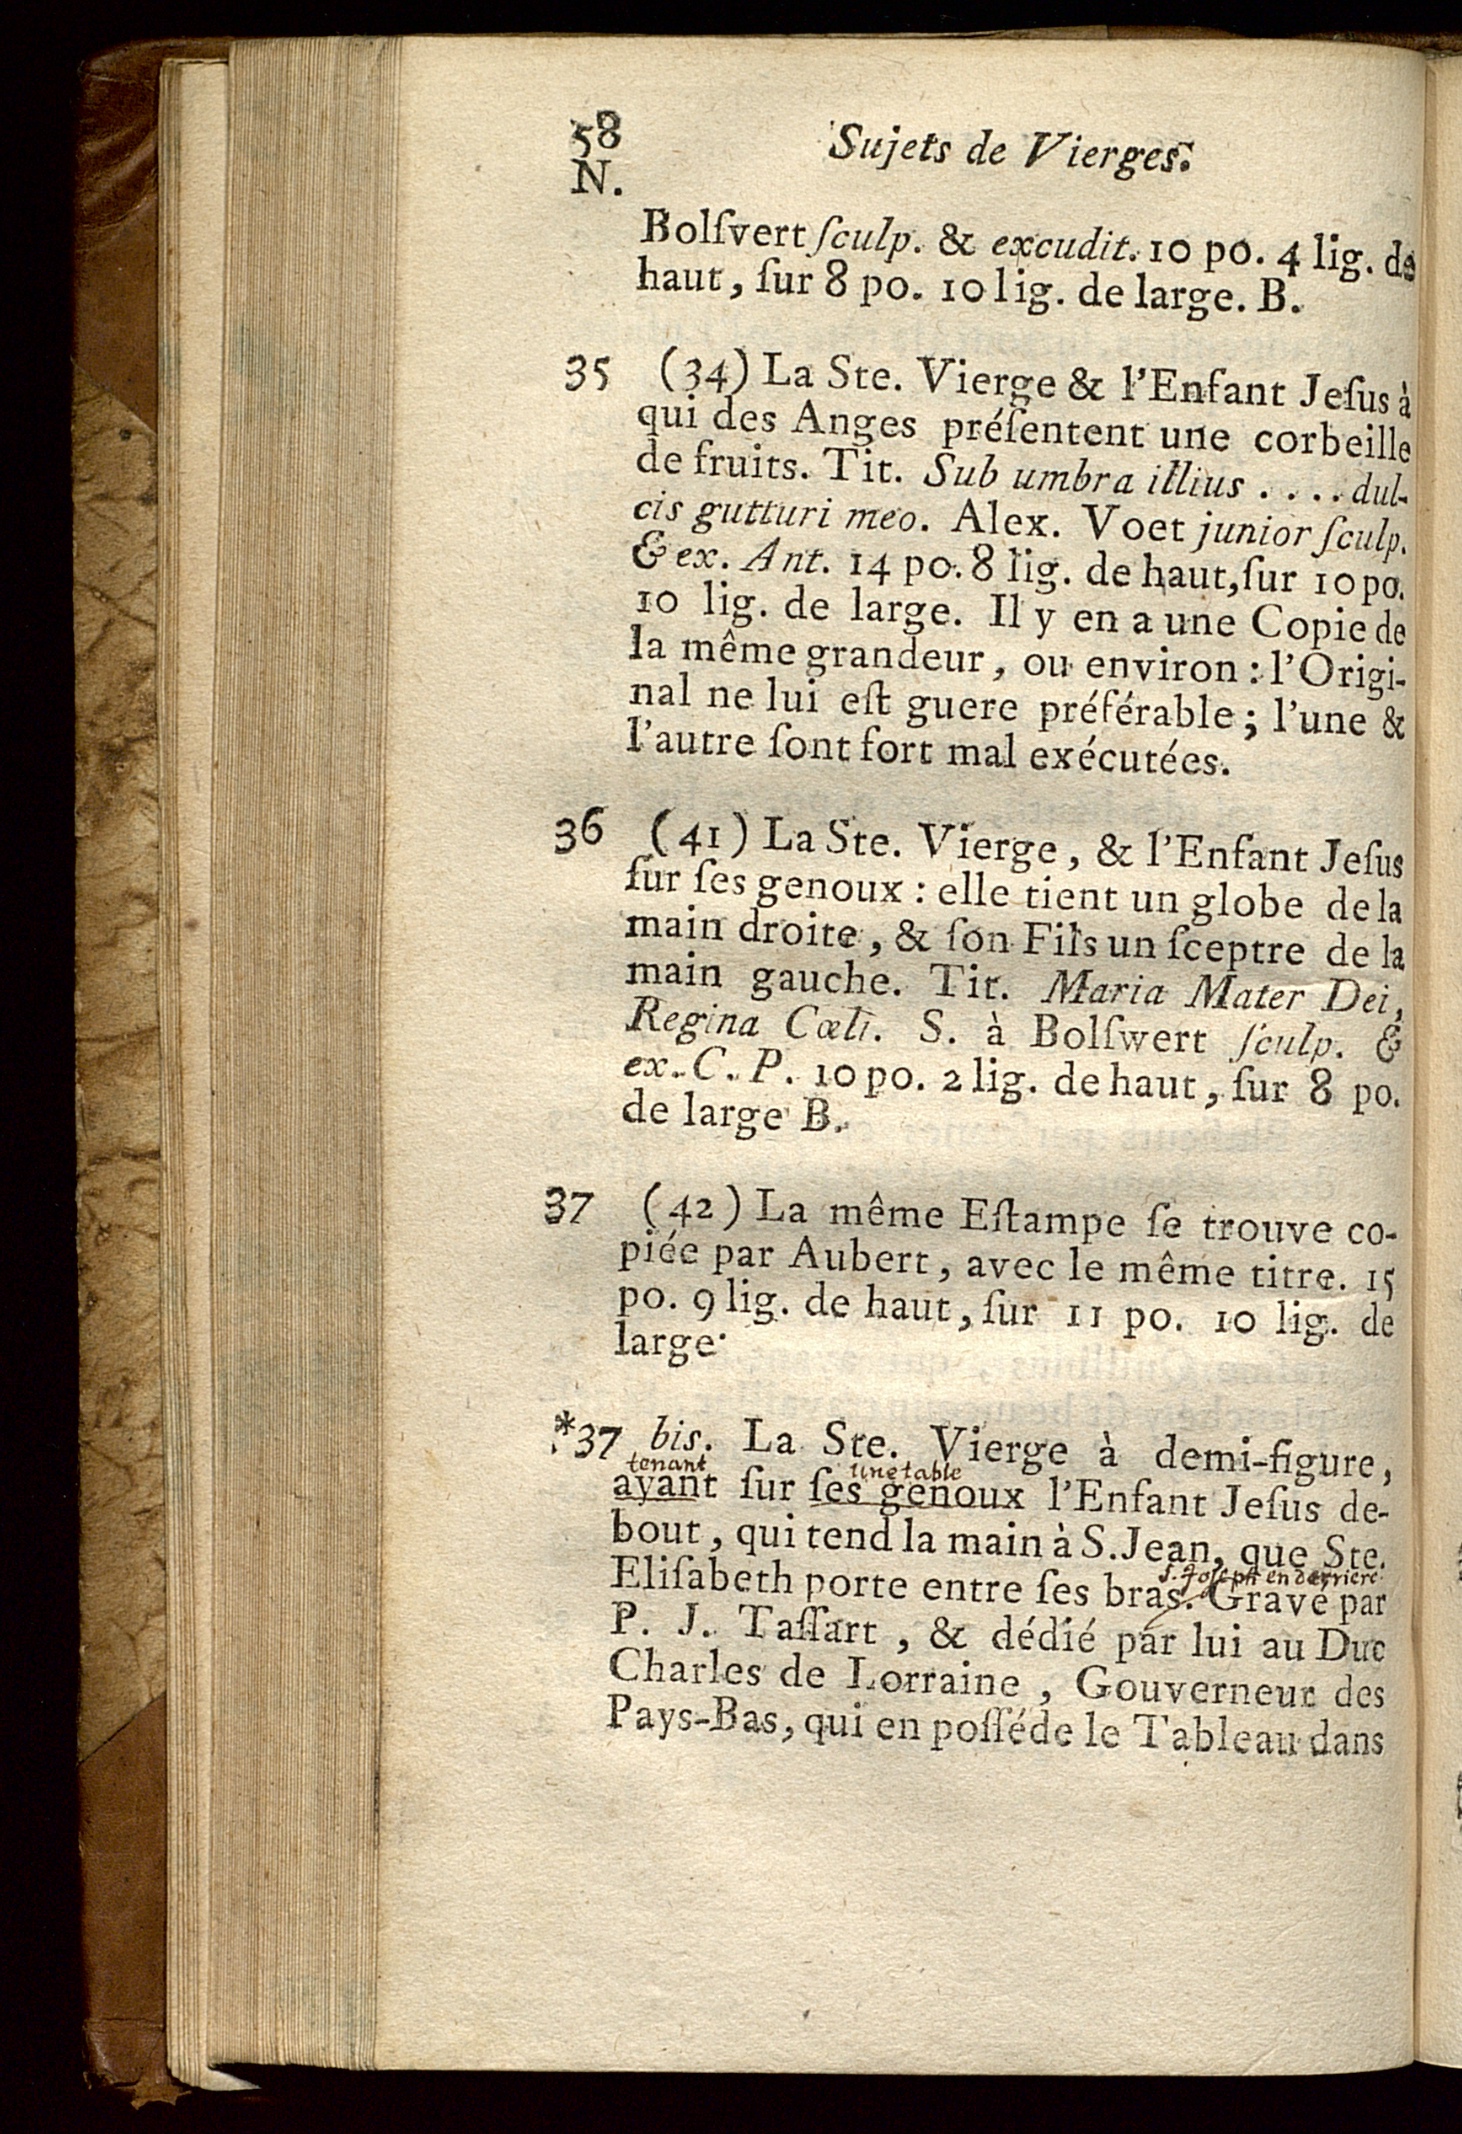 58 Sujets de Vierges.
N.
Bolſvert ſculp. & excudit. 10 po. 4 lig. de
haut, ſur 8 po. 10 lig. de large. B.
35 (34) La Ste. Vierge & l'Enfant Jeſus à
qui des Anges préſentent une corbeille
de fruits. Tit. Sub umbra illius . . . . dul-
cis gutturi meo. Alex. Voet junior ſculp.
& ex. Ant. 14 po. 8 lig. de haut, ſur 10 po.
10 lig. de large. Il y en a une Copie de
la même grandeur, ou environ : l'Origi-
nal ne lui eſt guere préférable ; l'une &
l'autre ſont fort mal exécutées.
36 (41) La Ste. Vierge, & l'Enfant Jeſus
ſur ſes genoux : elle tient un globe de la
main droite, & ſon Fils un ſceptre de la
main gauche. Tit. Maria Mater Dei,
Regina Cœli. S. à Bolſwert ſculp. &
ex. C. P. 10 po. 2 lig. de haut, ſur 8 po.
de large B.
37 (42) La même Eſtampe ſe trouve co-
piée par Aubert, avec le même titre. 15
po. 9 lig. de haut, ſur 11 po. 10 lig. de
large.
*37 bis. La Ste. Vierge à demi-figure,
tenant une table
ayant ſur ſes genoux l'Enfant Jeſus de-
bout, qui tend la main à S. Jean, que Ste.
S. Joseph en derriere
Eliſabeth porte entre ſes bras. Gravé par
P. J. Taſſart, & dédié par lui au Duc
Charles de Lorraine, Gouverneur des
Pays-Bas, qui en poſſéde le Tableau dans